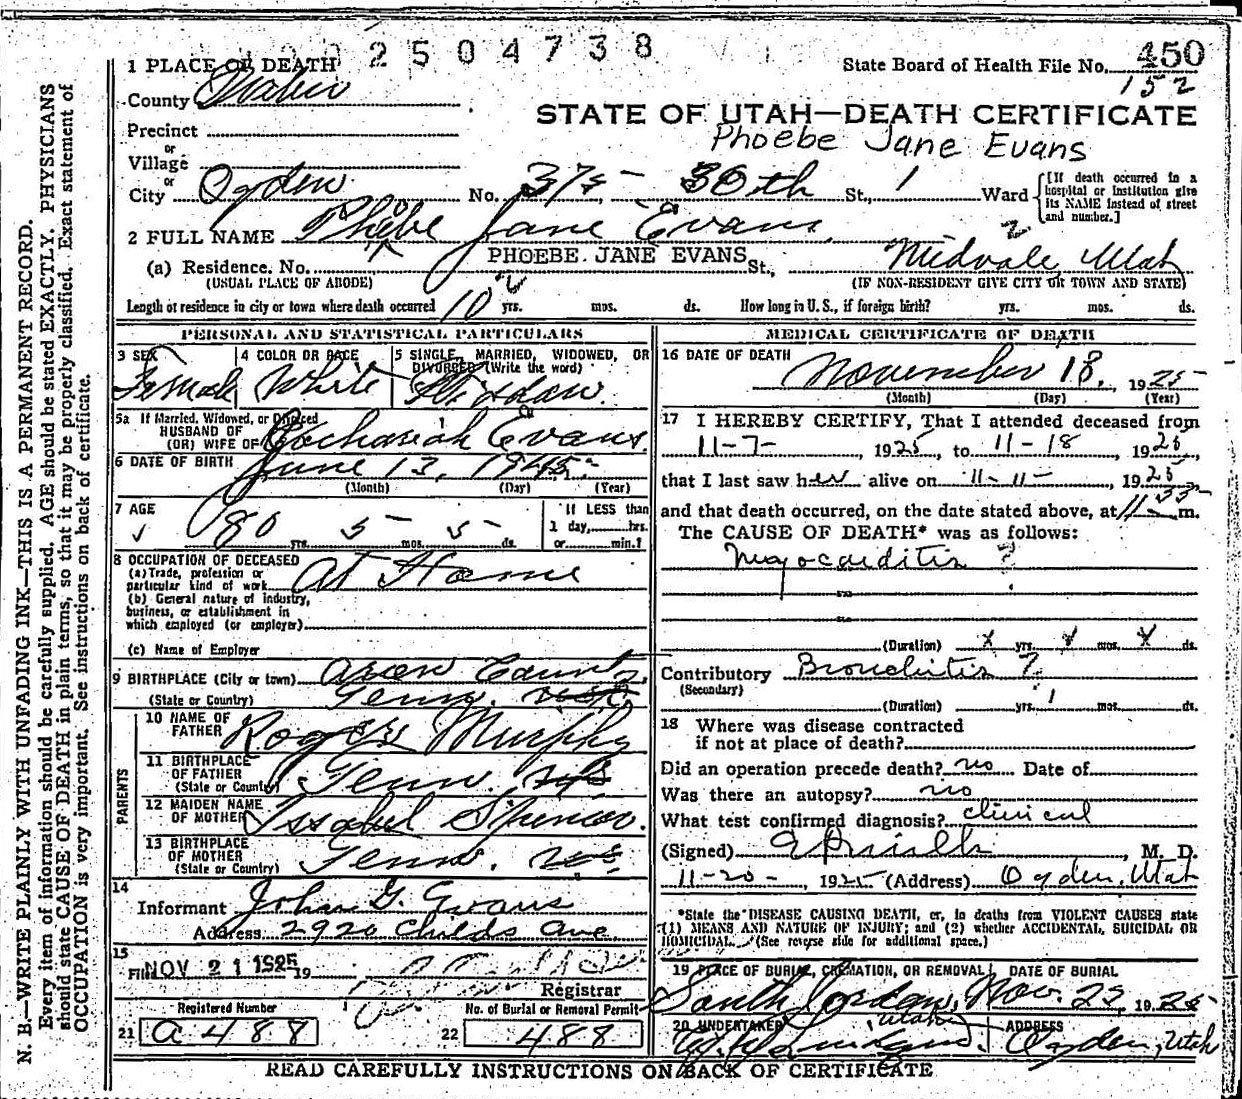 2 5 0 4 7 3 8
1 PLACE OF DEATH
State Board of Health File No. 450
152
County Weber
STATE OF UTAH—DEATH CERTIFICATE
Precinct
Phoebe Jane Evans
or
Village
or
City Ogden No. 375 - 30th St., 1 Ward
[If death occurred in a hospital or institution give its NAME instead of street and number.]
2 FULL NAME Phebe Jane Evans
2
PHOEBE JANE EVANS
(a) Residence. No. St., Midvale, Utah
(USUAL PLACE OF ABODE) (IF NON-RESIDENT GIVE CITY OR TOWN AND STATE)
Length of residence in city or town where death occurred 10 yrs. mos. ds. How long in U. S., if foreign birth? yrs. mos. ds.
PERSONAL AND STATISTICAL PARTICULARS
3 SEX Female
4 COLOR OR RACE White
5 SINGLE, MARRIED, WIDOWED, OR DIVORCED (Write the word) Widow
5a If Married, Widowed, or Divorced
HUSBAND OF
(OR) WIFE OF Zachariah Evans
6 DATE OF BIRTH June 13, 1845
(Month) (Day) (Year)
7 AGE
80 yrs. 5 mos. 5 ds.
If LESS than
1 day, hrs.
or min.?
8 OCCUPATION OF DECEASED
(a) Trade, profession or
particular kind of work At Home
(b) General nature of industry,
business, or establishment in
which employed (or employer)
(c) Name of Employer
9 BIRTHPLACE (City or town) County
(State or Country) Tenn.
PARENTS
10 NAME OF FATHER Roger Murphy
11 BIRTHPLACE OF FATHER
(State or Country) Tenn.
12 MAIDEN NAME OF MOTHER Issabel Spencer.
13 BIRTHPLACE OF MOTHER
(State or Country) Tenn.
14
Informant John G. Evans
Address 2920 Childs Ave
15
Filed NOV 21 1925 19
Registrar
Registered Number No. of Burial or Removal Permit
21 a 488 22 488
MEDICAL CERTIFICATE OF DEATH
16 DATE OF DEATH
November 18, 1925
(Month) (Day) (Year)
17 I HEREBY CERTIFY, That I attended deceased from
11-7-, 1925, to 11-18, 1925,
that I last saw her alive on 11-11-, 1925
and that death occurred, on the date stated above, at 11 55 m.
The CAUSE OF DEATH* was as follows:
Myocarditis ?
(Duration) x yrs. x mos. x ds.
Contributory Bronchitis ?
(Secondary)
(Duration) yrs. 1 mos. ds.
18 Where was disease contracted
if not at place of death?
Did an operation precede death? no Date of
Was there an autopsy? no
What test confirmed diagnosis? clinical
(Signed) , M. D.
11-20-, 1925 (Address) Ogden, Utah
*State the DISEASE CAUSING DEATH, or, in deaths from VIOLENT CAUSES state
(1) MEANS AND NATURE OF INJURY; and (2) whether ACCIDENTAL, SUICIDAL OR
HOMICIDAL. (See reverse side for additional space.)
19 PLACE OF BURIAL, CREMATION, OR REMOVAL DATE OF BURIAL
South Jordan, Utah Nov. 22, 1925
20 UNDERTAKER ADDRESS
Ogden, Utah
READ CAREFULLY INSTRUCTIONS ON BACK OF CERTIFICATE
N. B.—WRITE PLAINLY WITH UNFADING INK—THIS IS A PERMANENT RECORD.
Every item of information should be carefully supplied. AGE should be stated EXACTLY. PHYSICIANS
should state CAUSE OF DEATH in plain terms, so that it may be properly classified. Exact statement of
OCCUPATION is very important. See instructions on back of certificate.